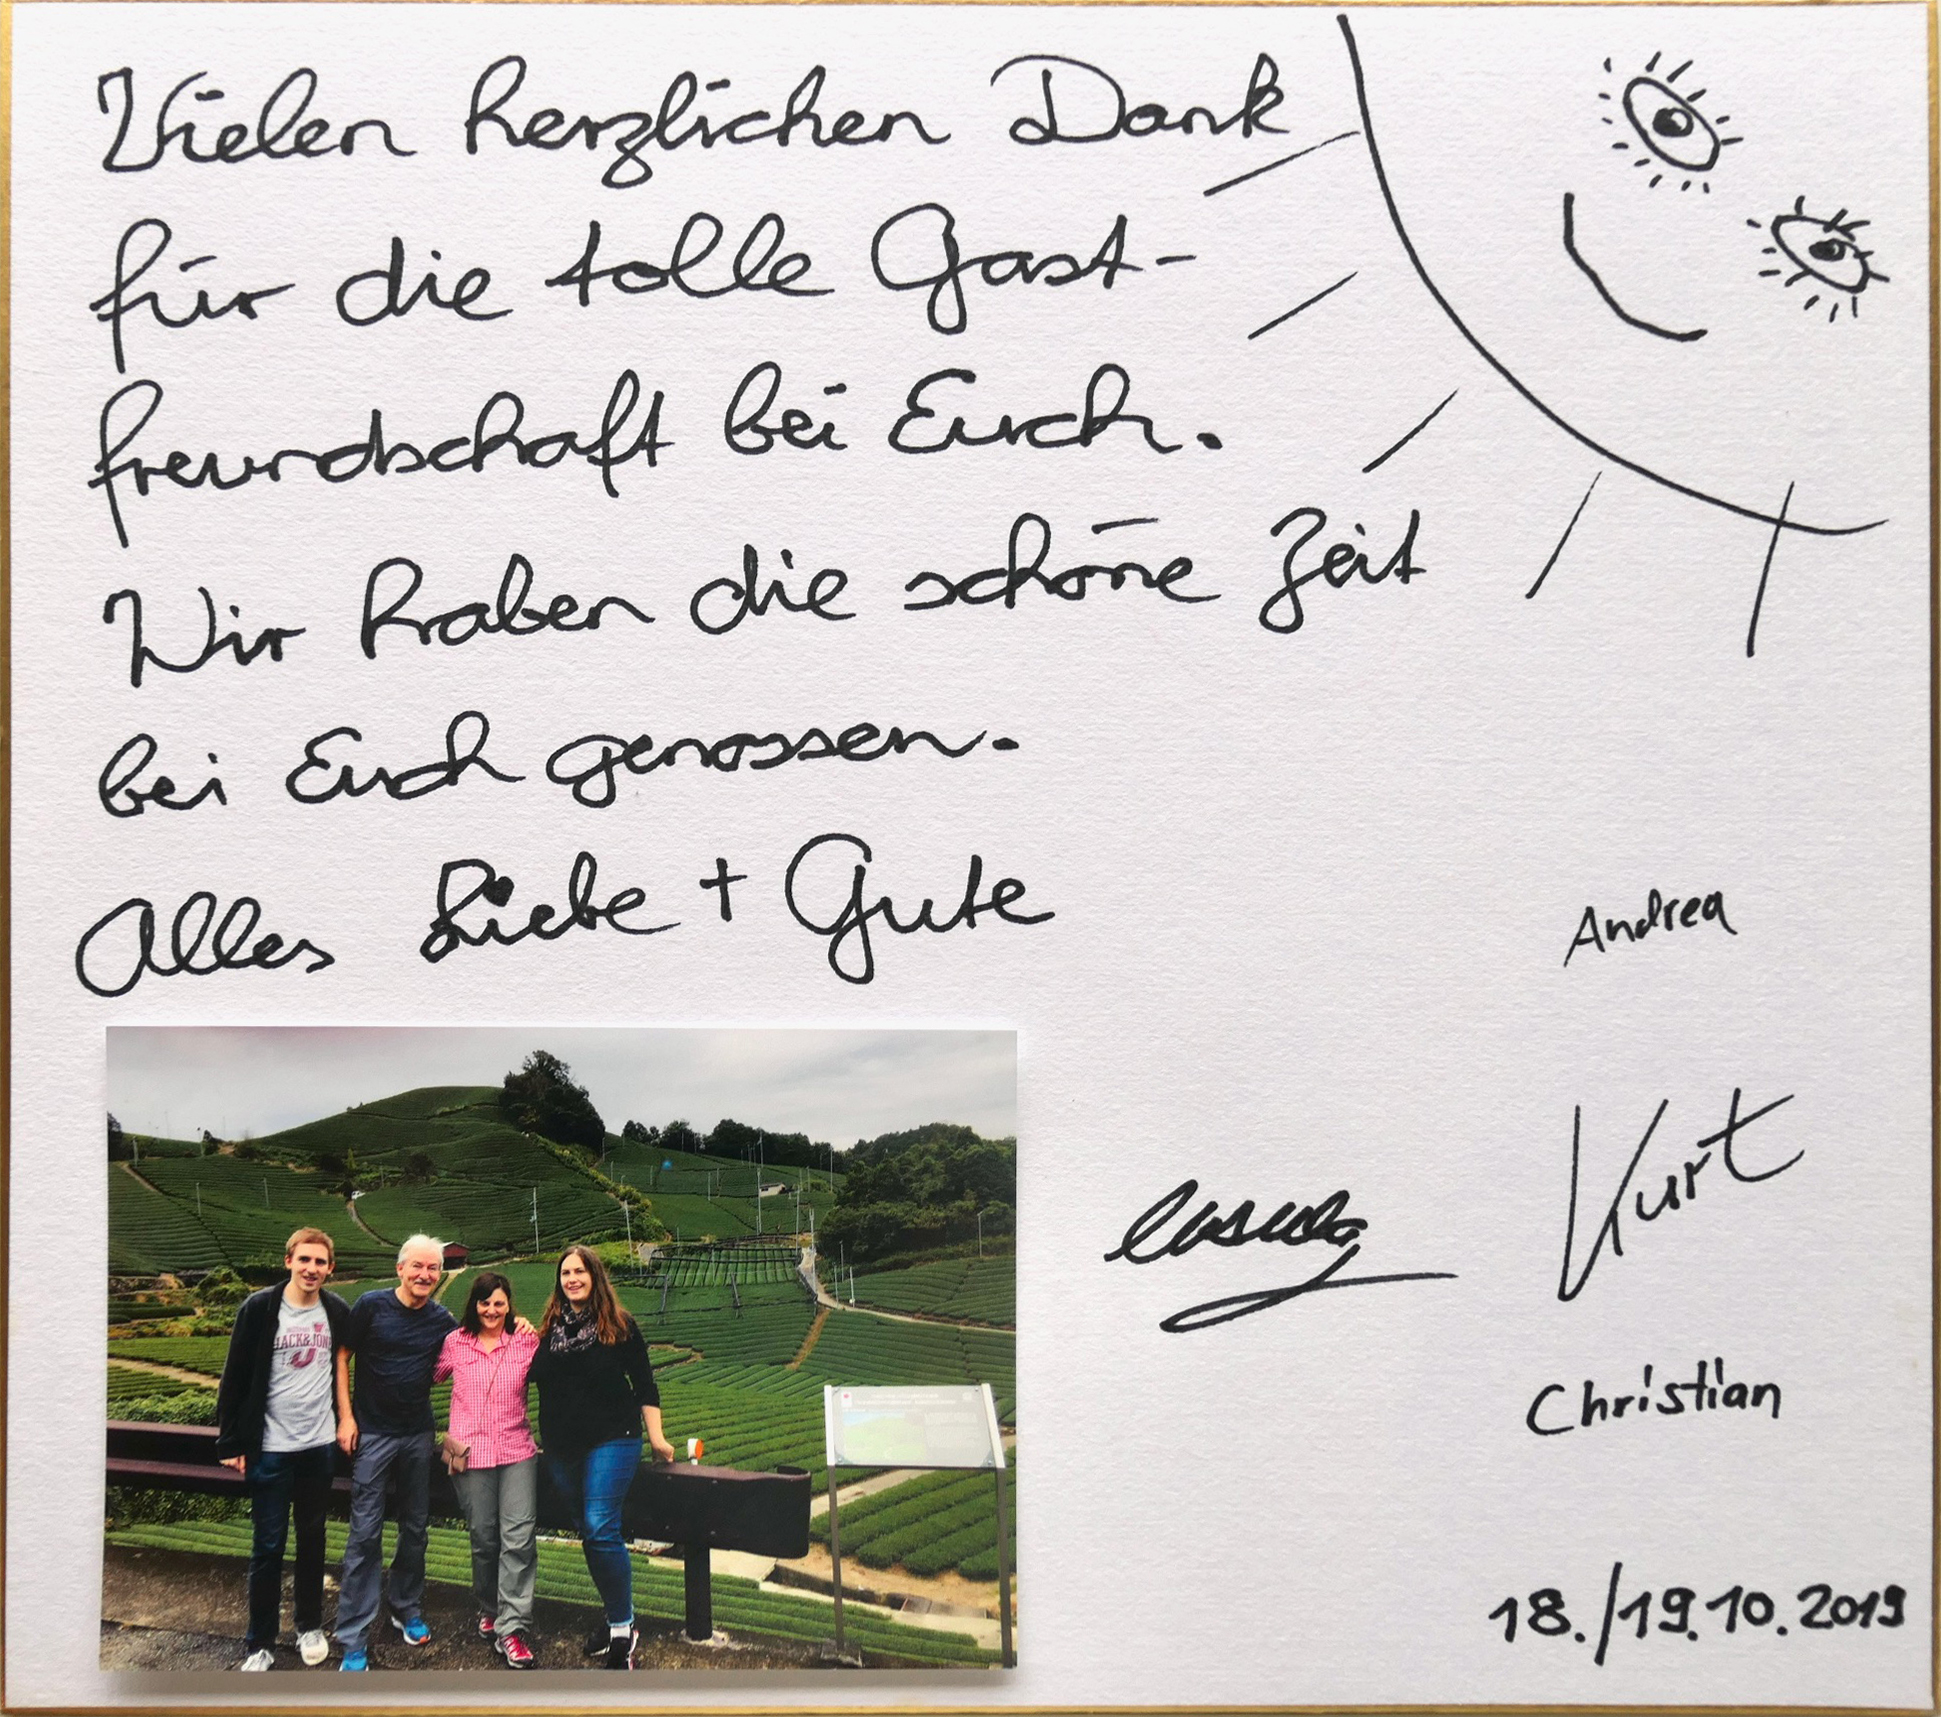 Vielen herzlichen Dank
für die tolle Gast-
freundschaft bei Euch.
Wir haben die schöne Zeit
bei Euch genossen.
Alles Liebe + Gute
Andrea
Kurt
Christian
18./19.10.2019